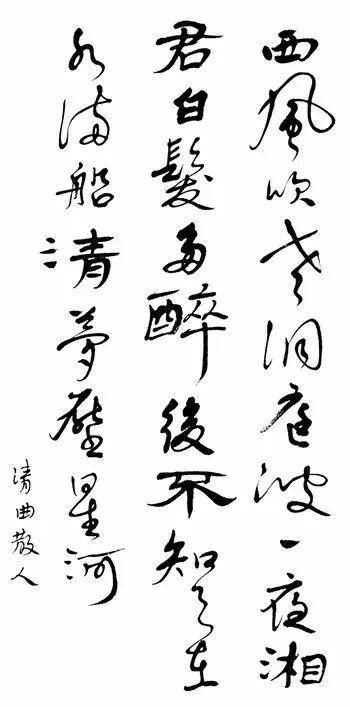 西風吹老洞庭波一夜湘
君白髮多醉後不知天在
水滿船清夢壓星河
清曲散人